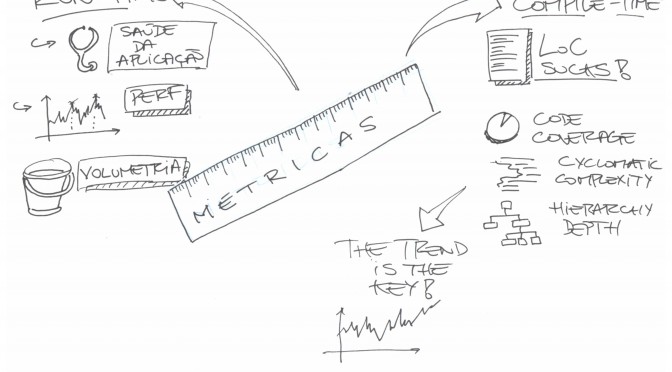 RUN-TIME
SAÚDE
DA
APLICAÇÃO
PERF
VOLUMETRIA
METRICAS
COMPILE-TIME
LOC
SUCKS!
CODE
COVERAGE
CYCLOMATIC
COMPLEXITY
HIERARCHY
DEPTH
THE TREND
IS THE
KEY!